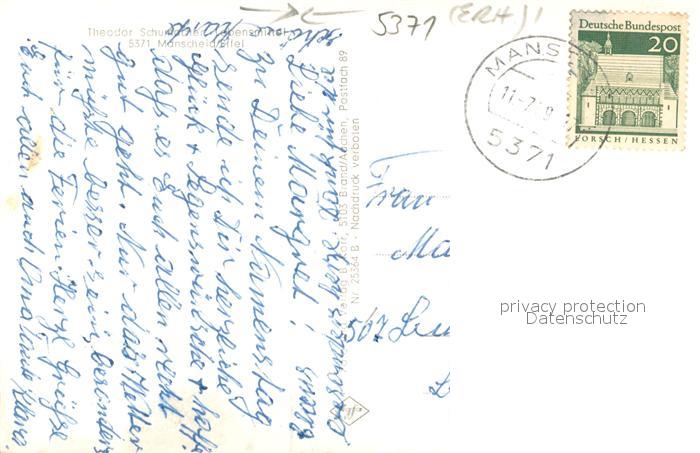 5371 (ERH)!
Theodor Schumacher, Lebensmittel
5371 Manscheid/Eifel
Deutsche Bundespost
20
LORSCH / HESSEN
MANS
11-7
5371
Liebe Margret!
Zu Deinem Namenstag
sende ich Dir herzliche
Glück + Segenswünsche + hoffe
daß es Euch allen recht
gut geht. Nur das Wetter
müßte besser sein, besonders
für die Ferien. Herzl. Grüße
Euch allen auch Oma
Verlag B. Korr, 5103 Brand/Aachen, Postfach 89
Nr. 25364 B - Nachdruck verboten
Frau
Ma
567
privacy protection
Datenschutz